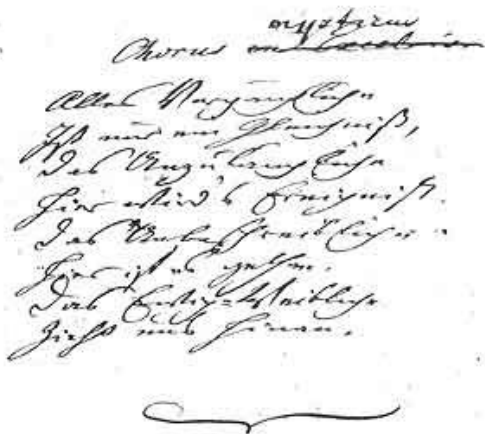 mysticus
Chorus in excelsis
Alles Vergängliche
Ist nur ein Gleichniß,
Das Unzulängliche
Hier wird's Ereigniß.
Das Unbeschreibliche
Hier ist es gethan.
Das Ewig-Weibliche
Zieht uns hinan.